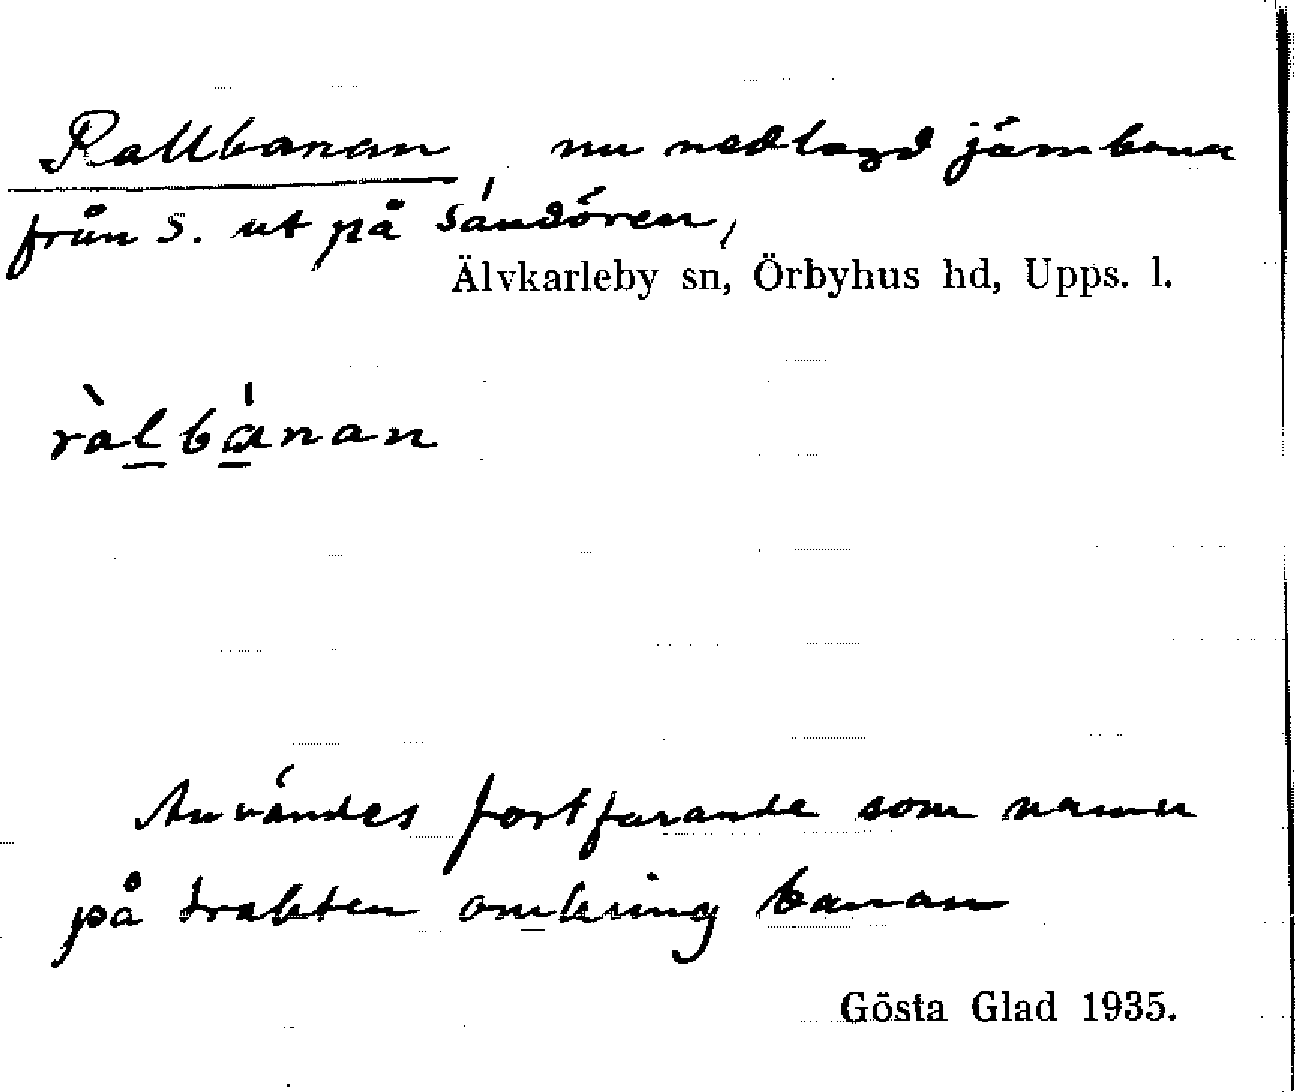 Rallbanan nu nedlagd järnbana
från S. ut på Sändören,
Älvkarleby sn, Örbyhus hd, Upps. l.
ràlbánan
Användes fortfarande som namn
på trakten omkring banan
Gösta Glad 1935.